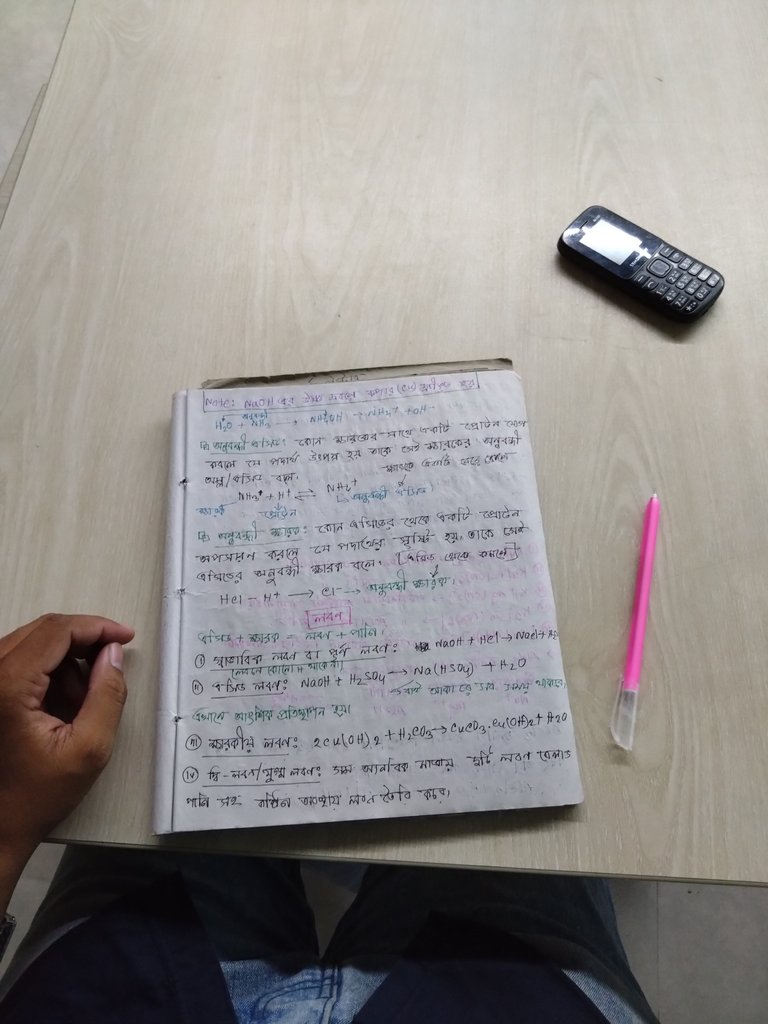 Note: NaOH এর
অনুবন্ধী
H₂O + NH₃ → NH₄OH → NH₄⁺ + OH⁻
অনুবন্ধী এসিড: কোন ক্ষারকের সাথে একটি প্রোটন যোগ
করলে যে পদার্থ উৎপন্ন হয় তাকে সেই ক্ষারকের অনুবন্ধী
অম্ল/এসিড বলে।
NH₃ + H⁺ ⇌ NH₄⁺
ক্ষারক প্রোটন অনুবন্ধী এসিড
অনুবন্ধী ক্ষারক: কোন এসিডের থেকে একটি প্রোটন
অপসারণ করলে যে পদার্থের সৃষ্টি হয়, তাকে সেই
এসিডের অনুবন্ধী ক্ষারক বলে। [এসিড থেকে কমলে]
HCl - H⁺ → Cl⁻ → অনুবন্ধী ক্ষারক।
লবণ
এসিড + ক্ষারক = লবণ + পানি।
(i) স্বাভাবিক লবণ বা পূর্ণ লবণ: NaOH + HCl → NaCl + H₂O
(ii) এসিড লবণ: NaOH + H₂SO₄ → Na(HSO₄) + H₂O
এখানে আংশিক প্রতিস্থাপন হয়।
(iii) ক্ষারকীয় লবণ: 2Cu(OH)₂ + H₂CO₃ → CuCO₃.Cu(OH)₂ + H₂O
(iv) দ্বি-লবণ/যুগ্ম লবণ: সম আনবিক মাত্রায় দুটি লবণ কেলাস
পানি সহ কঠিন অবস্থায় লবণ তৈরি করে।